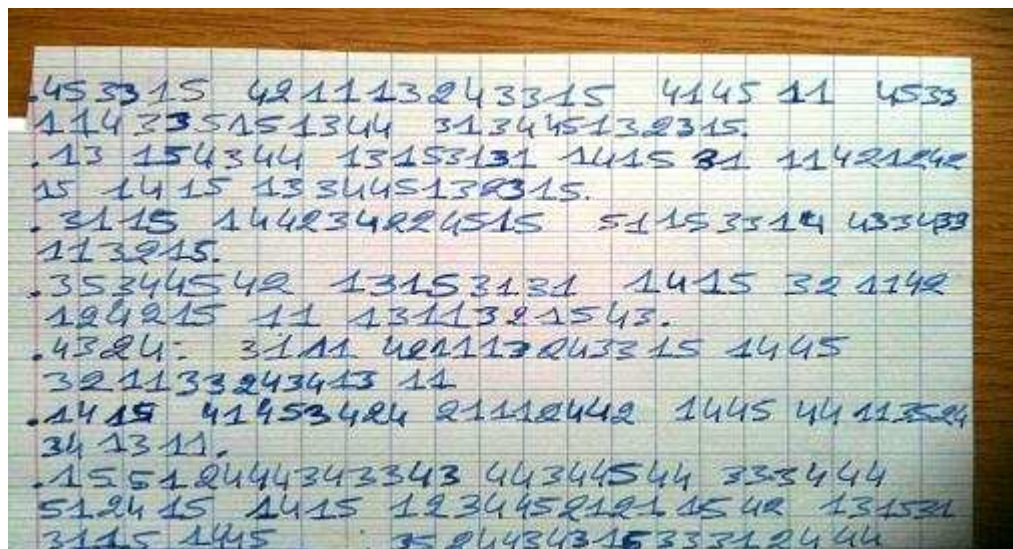 .453315 421113243315 4145 11 4533
114335151344 313445132315.
.13 154344 13153131 1415 31 11421242
15 1415 133445132315.
. 3115 144234224515 51153314 433433
113215.
.35344542 13153131 1415 321142
124215 11 1311321543.
.4324: 3111 421113243315 1445
321133243413 11
.1415 41453424 21112442 1445 44113524
34 13 11.
.15512444343343 44344544 333444
512415 1415 12344521211542 131531
3115 1415